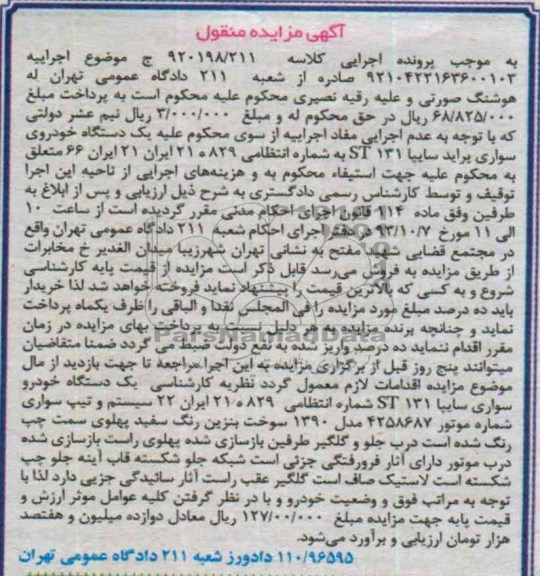 آگهی مزایده منقول
به موجب پرونده اجرایی کلاسه ۹۲۰۱۹۸/۲۱۱ ج موضوع اجراییه
۹۲۱۰۴۲۲۱۶۳۶۰۰۱۰۳ صادره از شعبه ۲۱۱ دادگاه عمومی تهران له
هوشنگ صورتی و علیه رقیه نصیری محکوم علیه محکوم است به پرداخت مبلغ
۶۸/۸۲۵/۰۰۰ ریال در حق محکوم له و مبلغ ۳/۰۰۰/۰۰۰ ریال نیم عشر دولتی
که با توجه به عدم اجرایی مفاد اجراییه از سوی محکوم علیه یک دستگاه خودروی
سواری پراید سایپا ST ۱۳۱ به شماره انتظامی ۸۲۹ ه ۲۱ ایران ۲۱ ایران ۶۶ متعلق
به محکوم علیه جهت استیفاء محکوم به و هزینه‌های اجرایی از ناحیه این اجرا
توقیف و توسط کارشناس رسمی دادگستری به شرح ذیل ارزیابی و پس از ابلاغ به
طرفین وفق ماده ۱۱۴ قانون اجرای احکام مدنی مقرر گردیده است از ساعت ۱۰
الی ۱۱ مورخ ۹۳/۱۰/۷ در دفتر اجرای احکام شعبه ۲۱۱ دادگاه عمومی تهران واقع
در مجتمع قضایی شهید مفتح به نشانی تهران شهرزیبا میدان الغدیر خ مخابرات
از طریق مزایده به فروش می‌رسد قابل ذکر است مزایده از قیمت پایه کارشناسی
شروع و به کسی که بالاترین قیمت را پیشنهاد نماید فروخته خواهد شد لذا خریدار
باید ده درصد مبلغ مورد مزایده را فی المجلس نقدا و الباقی را ظرف یکماه پرداخت
نماید و چنانچه برنده مزایده به هر دلیل نسبت به پرداخت بهای مزایده در زمان
مقرر اقدام ننماید ده درصد واریز شده به نفع دولت ضبط می گردد ضمنا متقاضیان
میتوانند پنج روز قبل از برگزاری مزایده به این اجرا مراجعه تا جهت بازدید از مال
موضوع مزایده اقدامات لازم معمول گردد نظریه کارشناسی یک دستگاه خودرو
سواری سایپا ST ۱۳۱ شماره انتظامی ۸۲۹ ه ۲۱ ایران ۲۲ سیستم و تیپ سواری
شماره موتور ۴۲۵۸۶۸۷ مدل ۱۳۹۰ سوخت بنزین رنگ سفید پهلوی سمت چپ
رنگ شده است درب جلو و گلگیر طرفین بازسازی شده پهلوی راست بازسازی شده
درب موتور دارای آثار فرورفتگی جزئی است شبکه جلو شکسته قاب آینه جلو چپ
شکسته است لاستیک صاف است گلگیر عقب راست آثار سائیدگی جزیی دارد لذا با
توجه به مراتب فوق و وضعیت خودرو و با در نظر گرفتن کلیه عوامل موثر ارزش و
قیمت پایه جهت مزایده مبلغ ۱۲۷/۰۰/۰۰۰ ریال معادل دوازده میلیون و هفتصد
هزار تومان ارزیابی و برآورد می‌شود.
۱۱۰/۹۶۵۹۵ دادورز شعبه ۲۱۱ دادگاه عمومی تهران
ParsNamadData